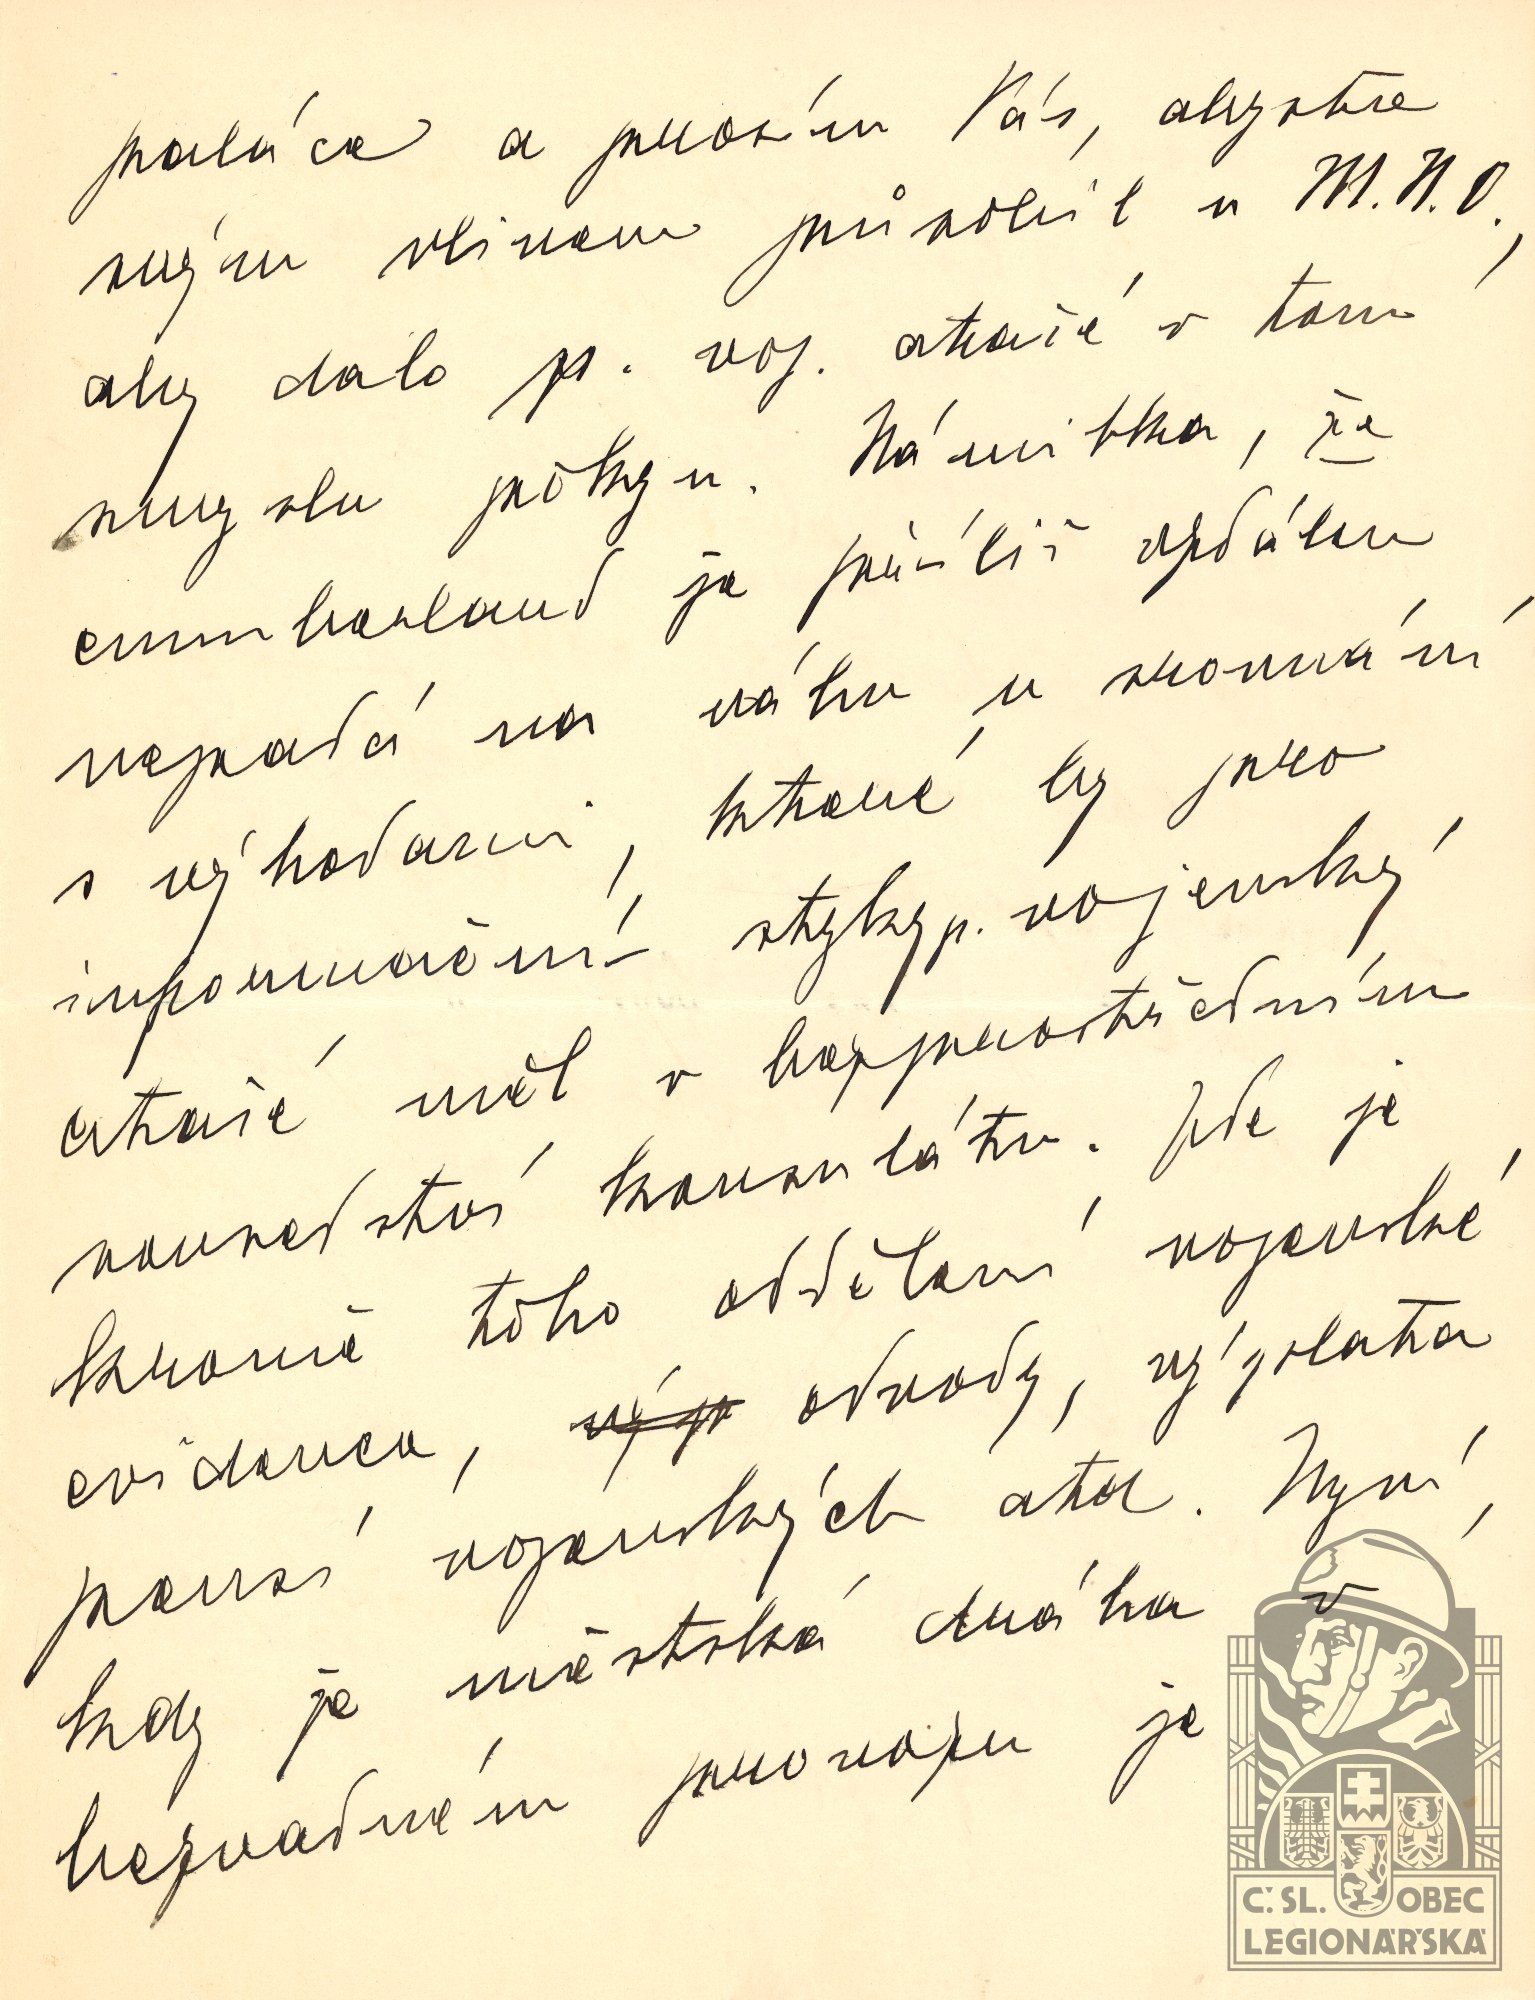 paláce a prosím Vás, abyste
svým vlivem působil u M.N.O.,
aby dalo p. voj. atašé v tom
smyslu pokyn. Námitka, že
cumberland je příliš vzdálen
nepadá na váhu u srovnání
s výhodami, které by pro
informační styky p. vojenský
atašé měl v bezprostředním
sousedství konsulátu. Zde je
kromě toho oddělení vojenské
evidence, výp odvody, výplata
pensí vojenských atd. Nyní,
kdy je městská dráha v
bezvadném provozu je
Č.SL. OBEC
LEGIONÁŘSKÁ